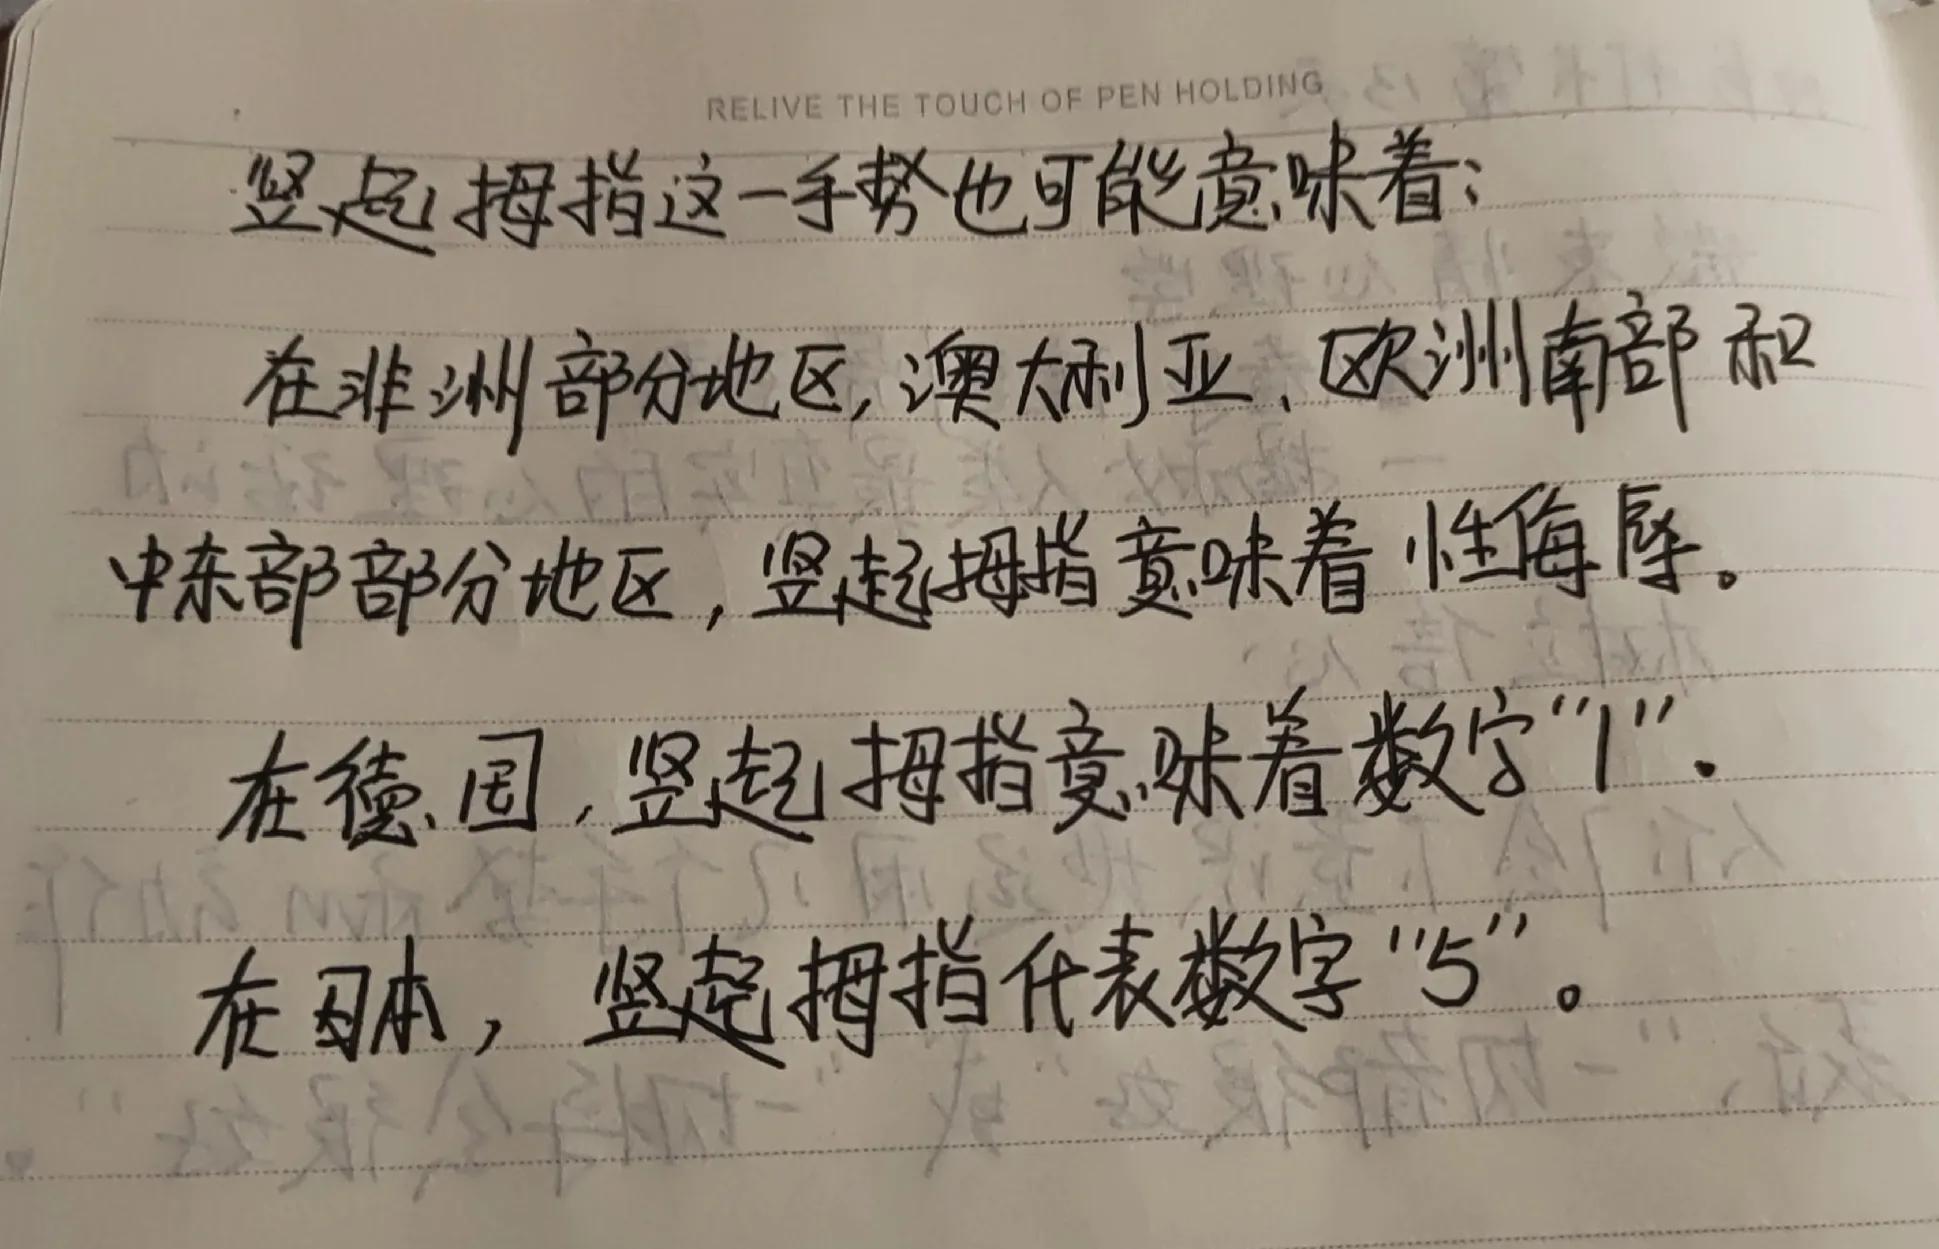 RELIVE THE TOUCH OF PEN HOLDING
竖起拇指这一手势也可能意味着：
在非洲部分地区,澳大利亚、欧洲南部和
中东部部分地区,竖起拇指意味着性侮辱。
在德国,竖起拇指意味着数字“1”.
在日本,竖起拇指代表数字“5”。